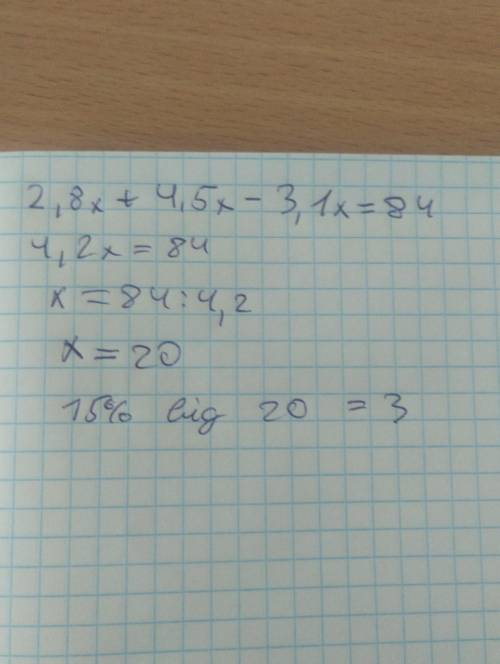 2,8x + 4,5x - 3,1x = 84
4,2x = 84
x = 84 : 4,2
x = 20
15% від 20 = 3